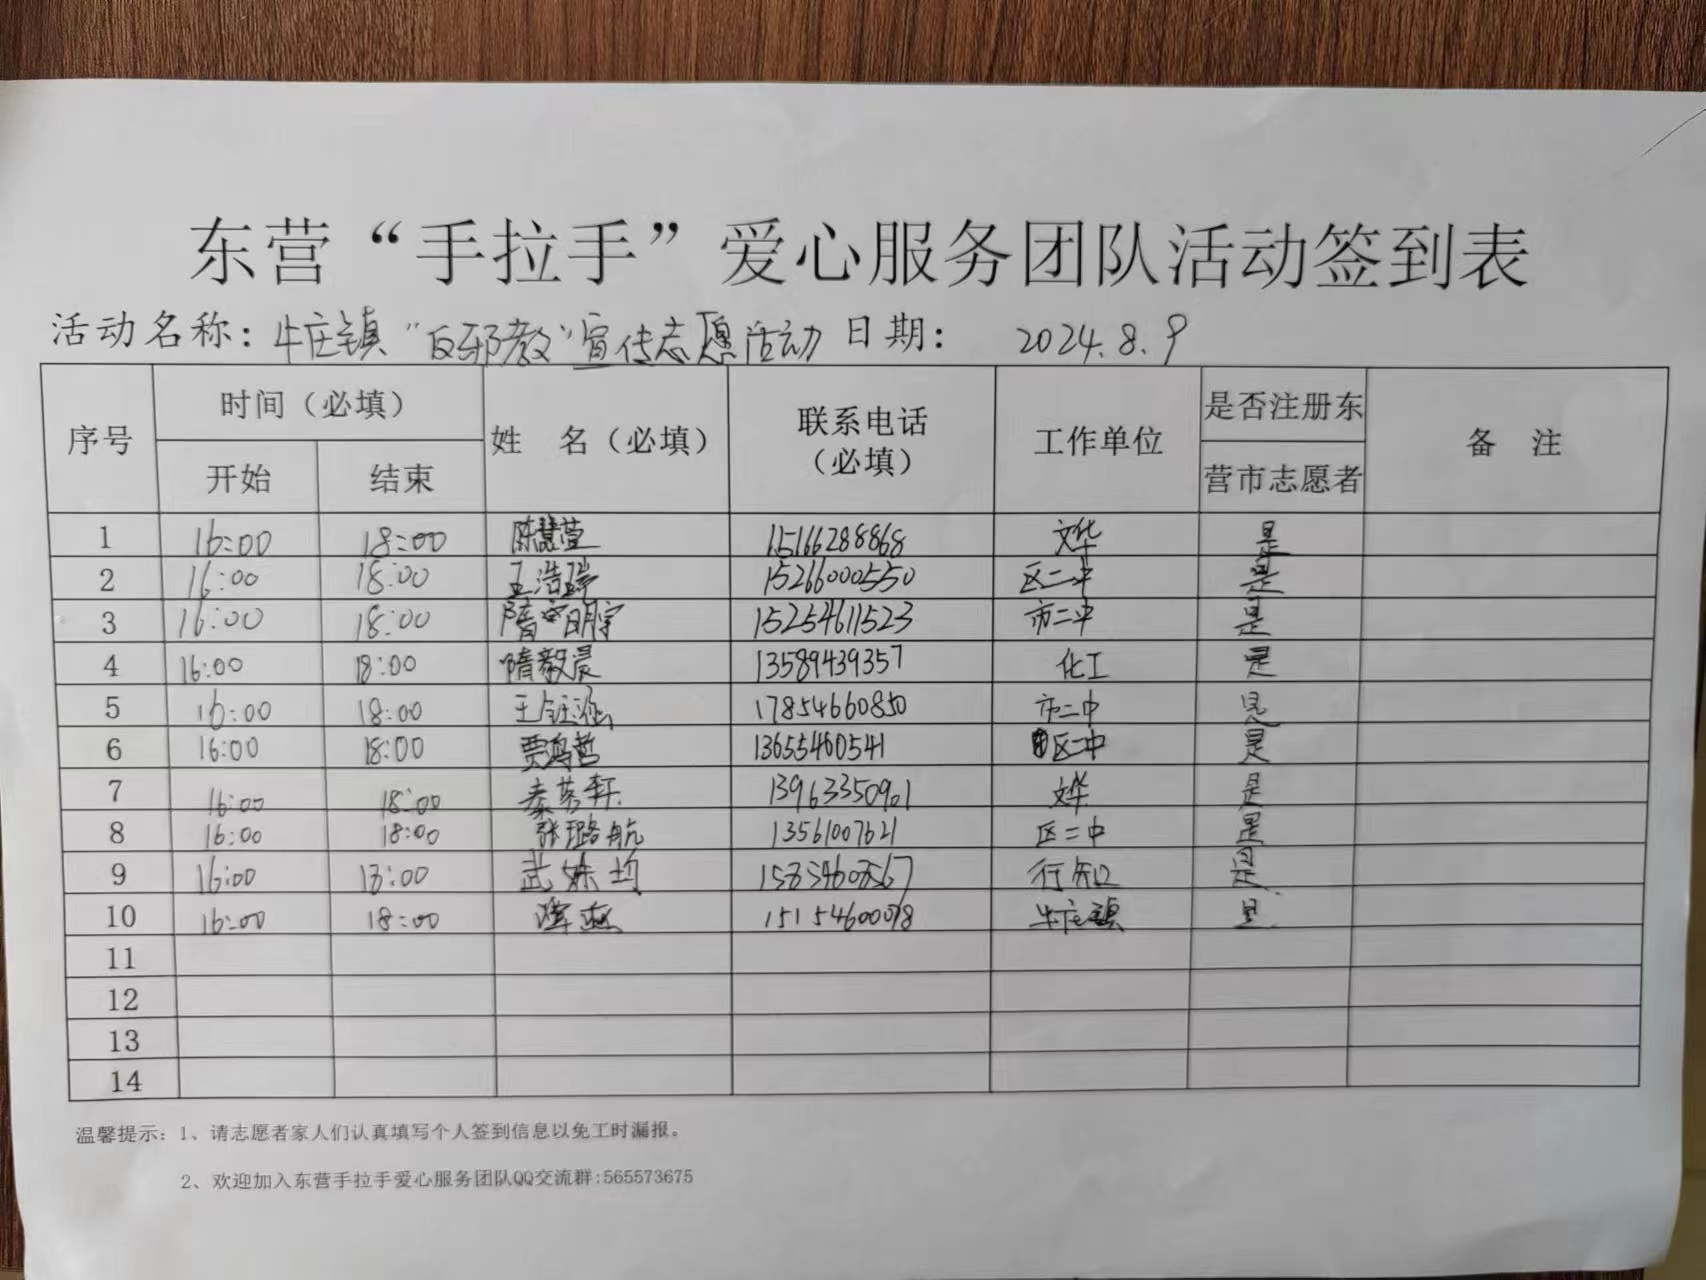 东营“手拉手”爱心服务团队活动签到表
活动名称：牛庄镇“反邪教”宣传志愿活动 日期： 2024.8.9
序号 时间（必填） 姓 名（必填） 联系电话（必填） 工作单位 是否注册东营市志愿者 备 注
开始 结束
1 16:00 18:00 陈慧萱 15166288868 文华 是
2 16:00 18:00 王浩瑞 15266000550 区二中 是
3 16:00 18:00 隋明宇 15254611523 市二中 是
4 16:00 18:00 隋毅晨 13589439357 化工 是
5 16:00 18:00 王钰涵 17854660850 市二中 是
6 16:00 18:00 贾鸿哲 13655460541 区二中 是
7 16:00 18:00 13963350901 文华 是
8 16:00 18:00 张璐航 13561007621 区二中 是
9 16:00 18:00 武 均 行知 是
10 16:00 18:00 牛庄镇 是
11
12
13
14
温馨提示：1、请志愿者家人们认真填写个人签到信息以免工时漏报。
2、欢迎加入东营手拉手爱心服务团队QQ交流群:565573675